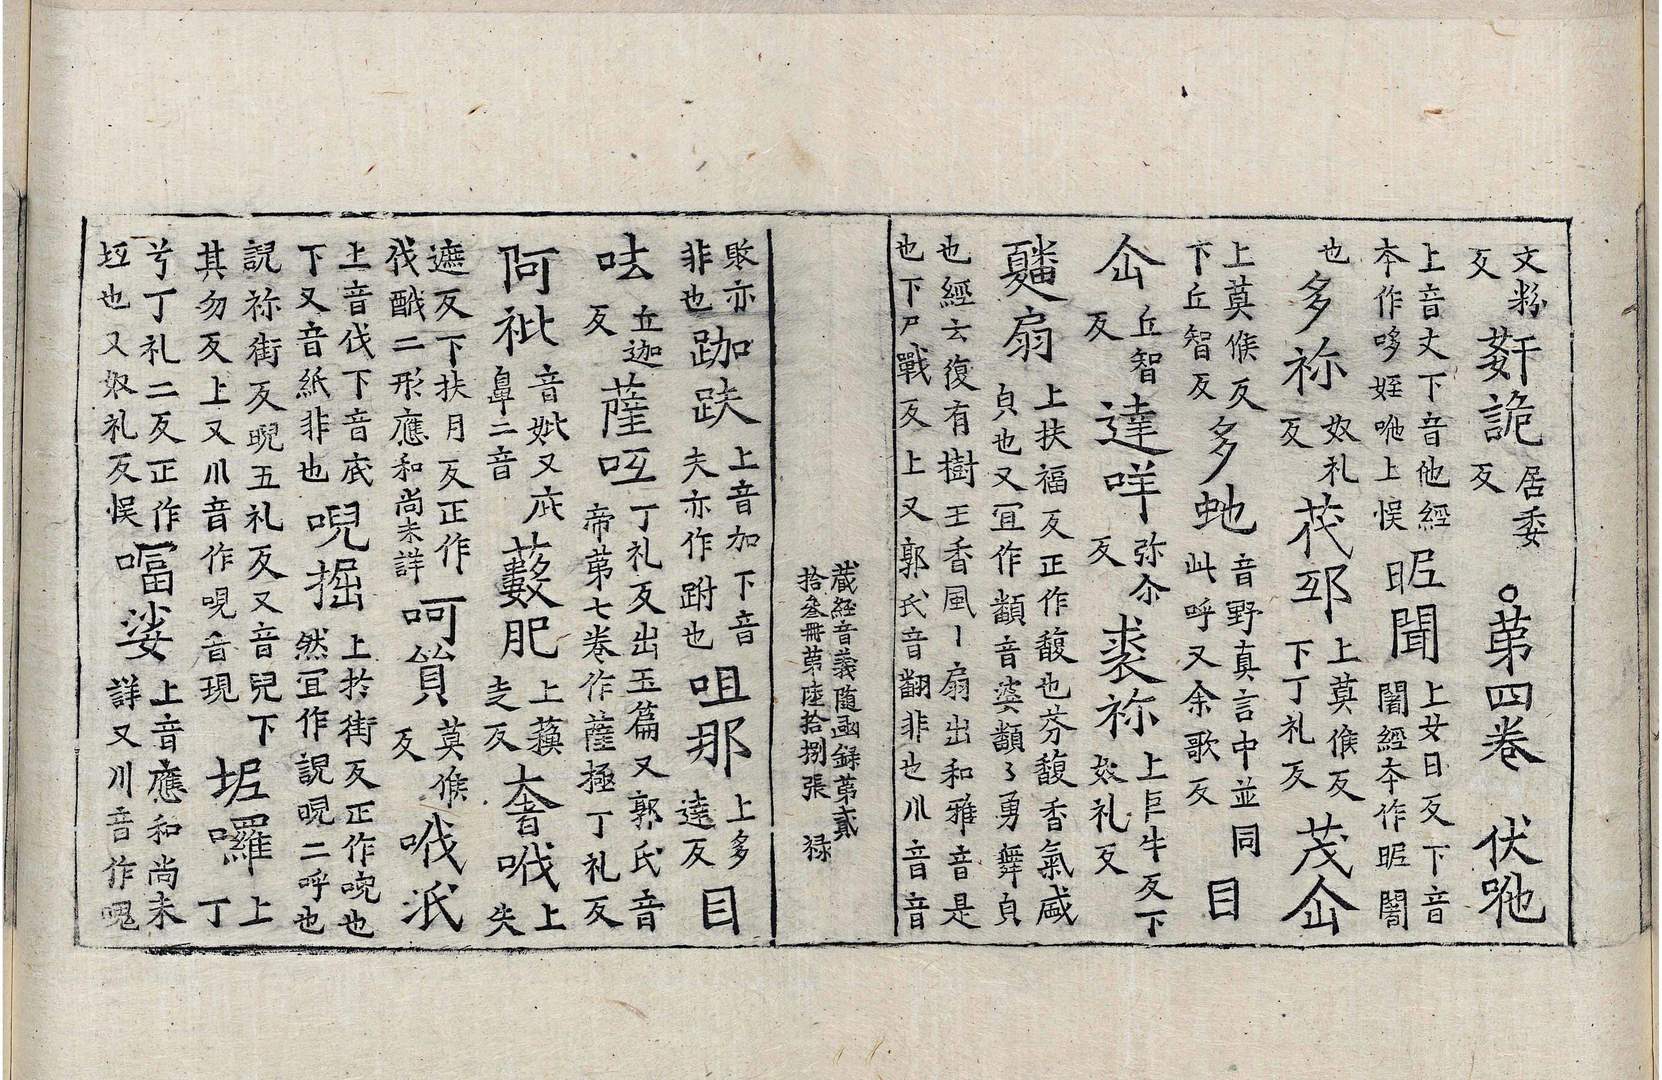 文粉反姧詭居委反○第四卷伏吔
上音丈下音他經本作哆姪吔上悮昵聞上女日反下音闇經本作昵闇
也多祢奴礼反茂邳上莫候反下丁礼反茂㕣
上莫候反下丘智反多虵音野真言中並同此呼又余歌反目
㕣丘智反達哶弥尒反裘祢上巨牛反下奴礼反
馥扇上扶福反正作馥也芬馥香氣盛皃也又冝作䫖音婆䫖〻勇舞皃
也經云復有樹王香風丨扇出和雅音是也下尸戰反上又郭氏音翻非也川音音
蔵經音義随函録第貳拾叄冊第陸拾捌張 禄
敗亦非也跏趺上音加下音夫亦作跗也咀那上多達反目
呿丘迦反薩㖑丁礼反出玉篇又郭氏音帝第七卷作薩極丁礼反
阿枇音妣又庇鼻二音藪肥上蘓走反奢哦上失
遮反下扶月反正作伐䤦二形應和尚未詳呵貿莫候反哦泜
上音伐下音底下又音紙非也唲掘上扵街反正作唲也然冝作說睨二呼也
說祢街反睨五礼反又音兒下其勿反上又川音作哯音現坭囉上丁
兮丁礼二反正作坘也又奴礼反悮㗒娑上音應和尚未詳又川音作嗯